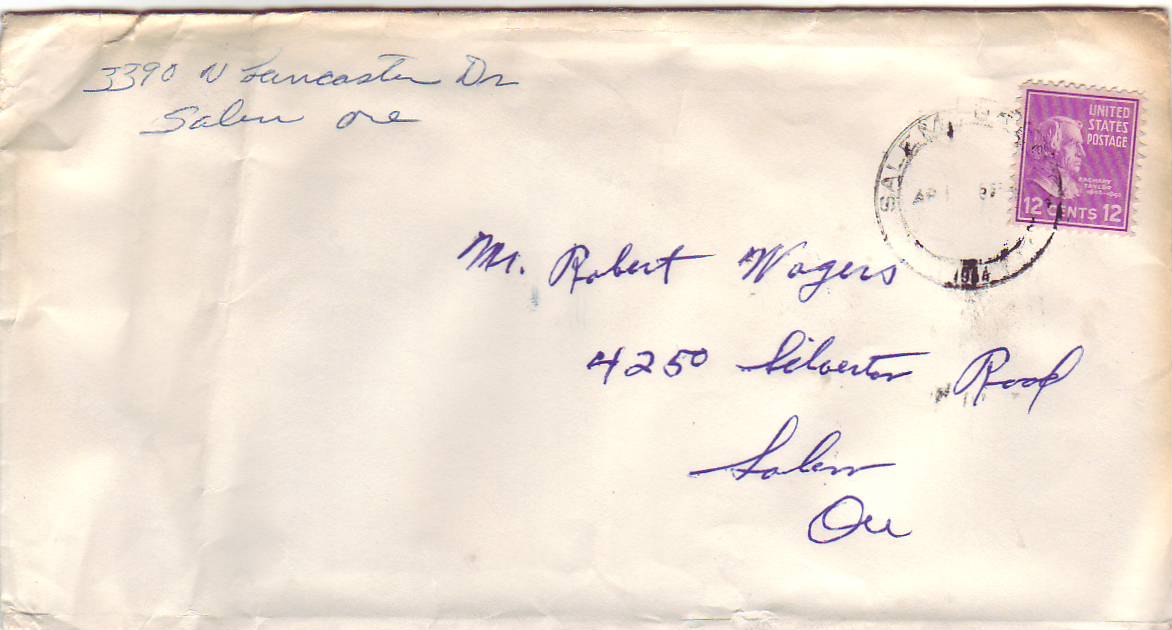 3390 N Lancaster Dr
Salem Ore
SALEM
1964
UNITED
STATES
POSTAGE
ZACHARY
TAYLOR
12 CENTS 12
Mr. Robert Wagers
4250 Silverton Road
Salem
Ore